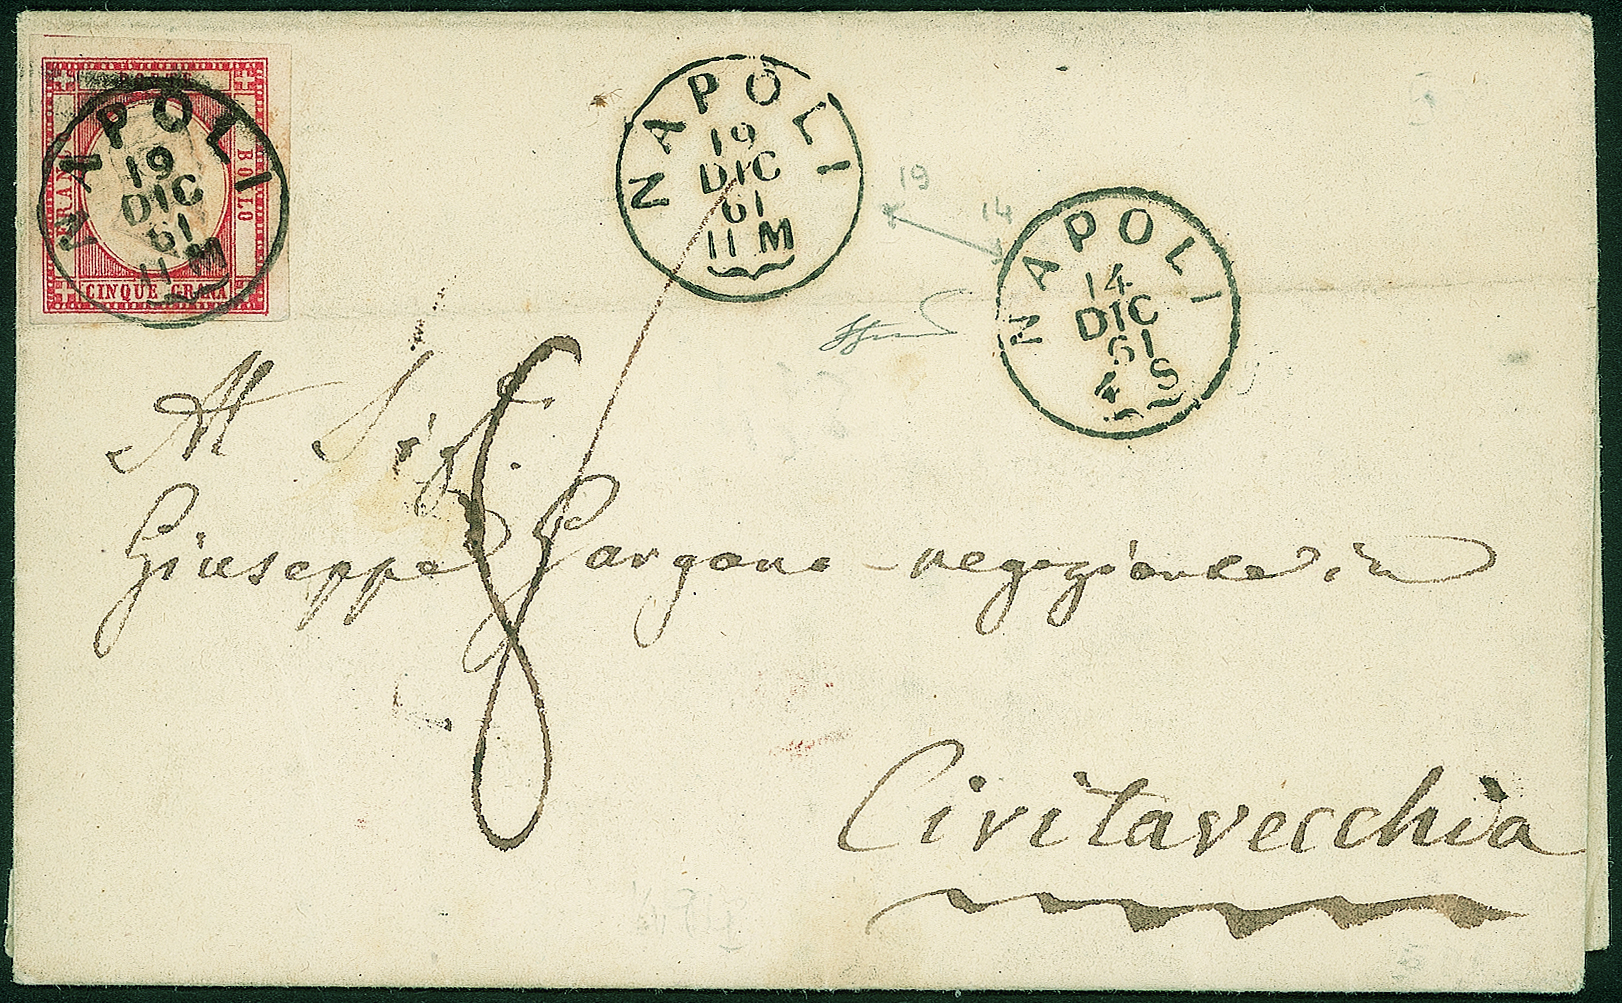 FRANCO
BOLLO
CINQUE GRANA
NAPOLI
19
DIC
61
11 M
NAPOLI
19
DIC
61
11 M
19
14
NAPOLI
14
DIC
61
4 S
8
Al Sig.
Giuseppe Gargano - negoziante in
Civitavecchia